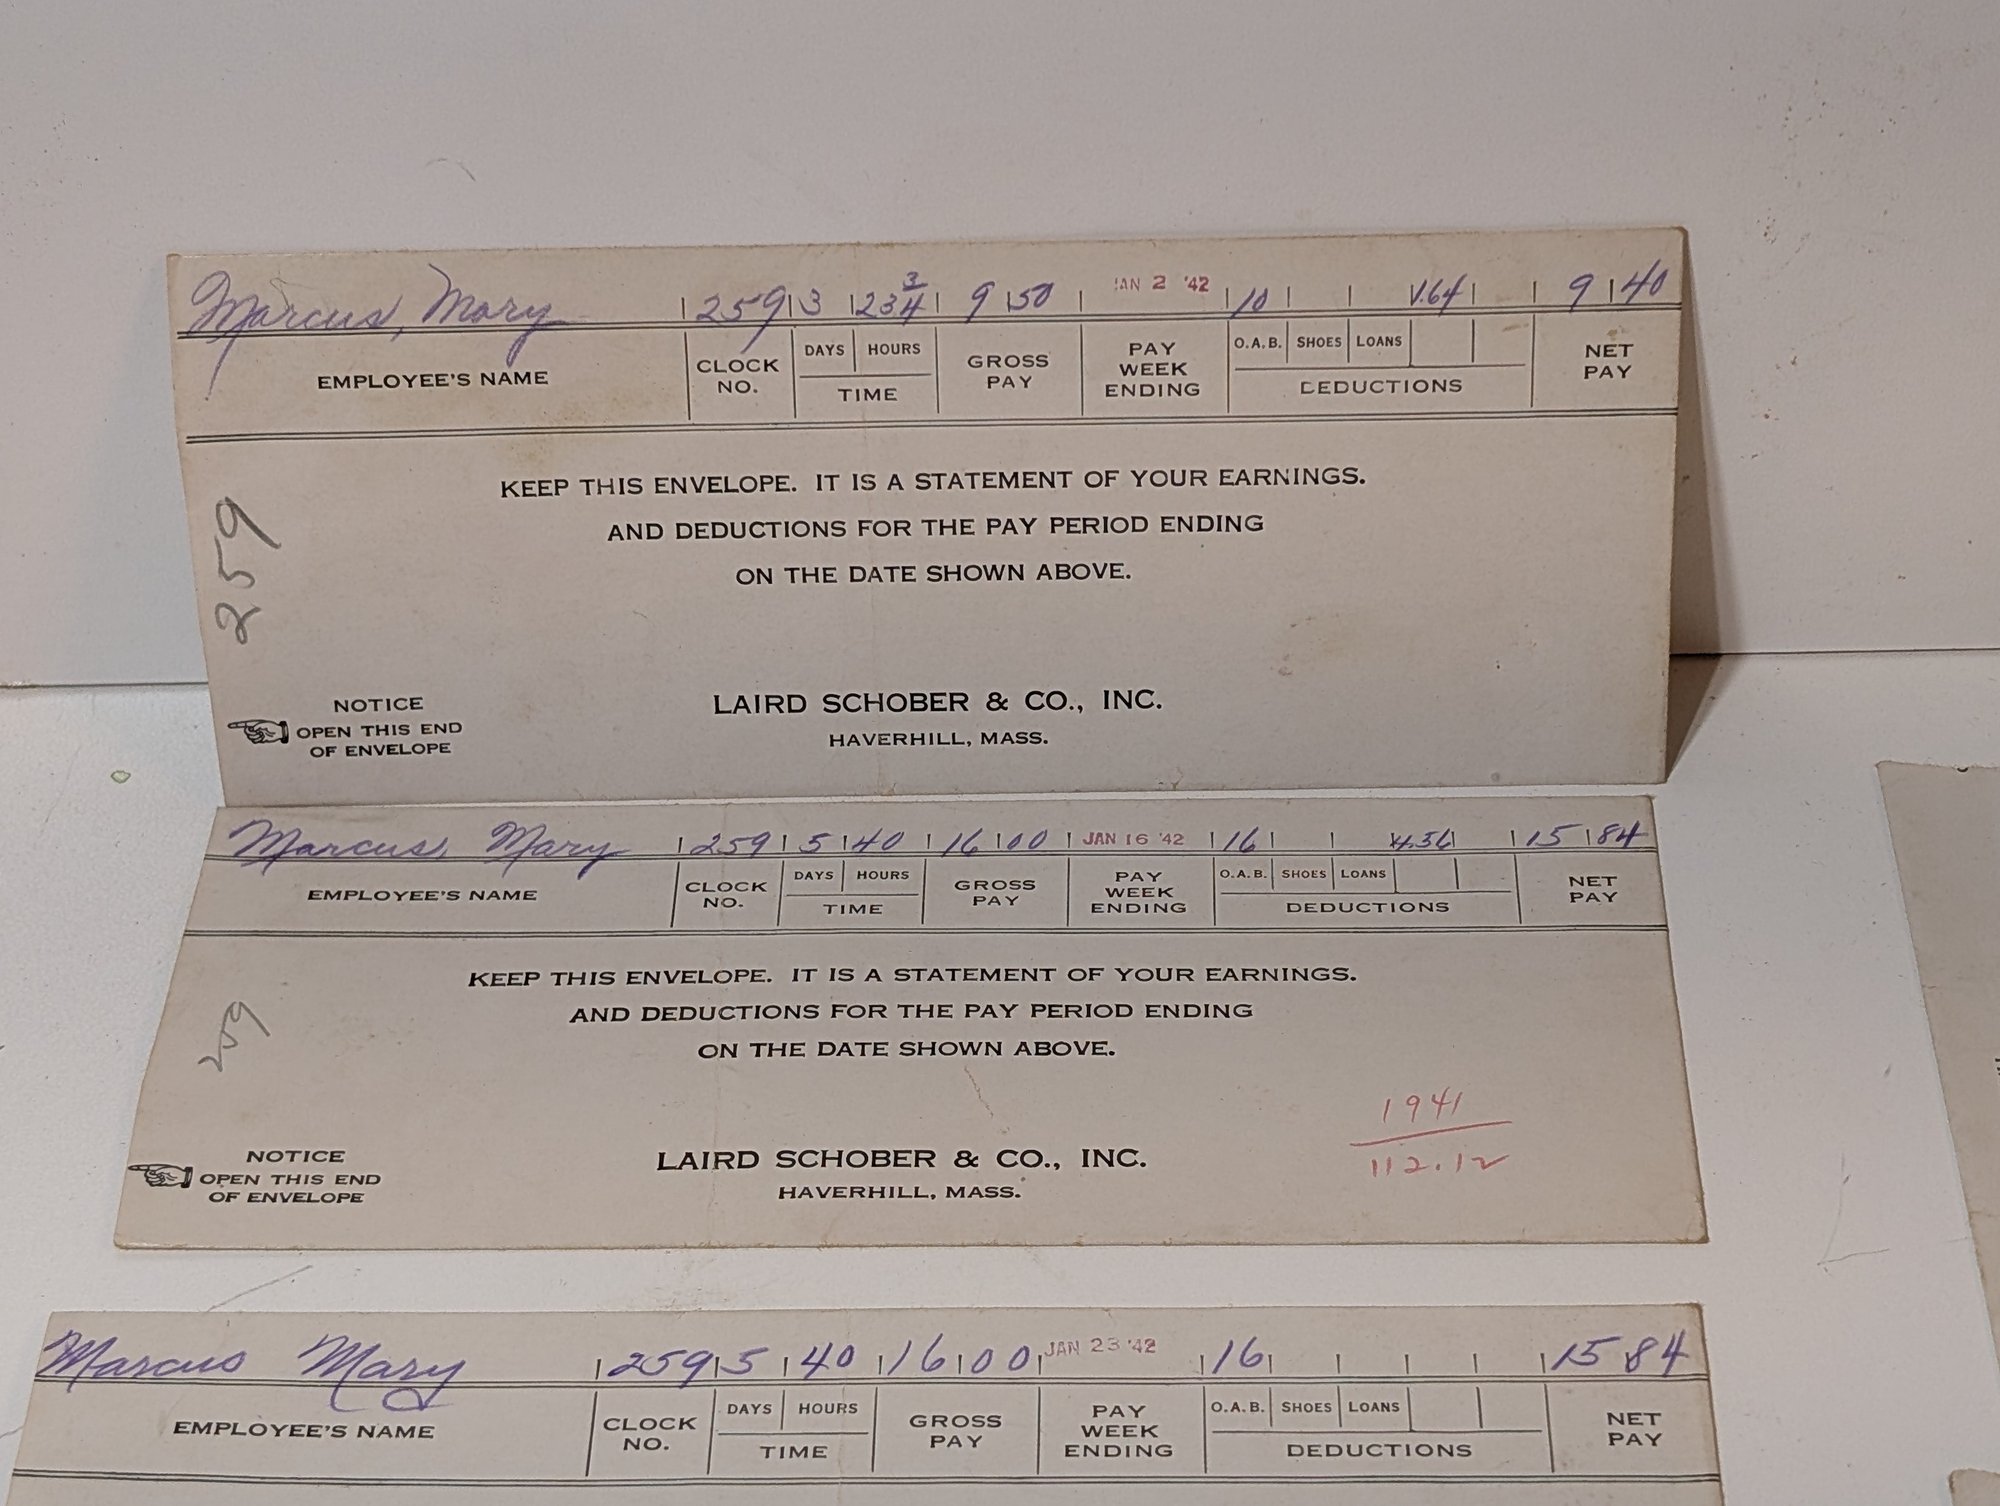 Marcus, Mary 259 3 23 3/4 9 50 JAN 2 '42 10 1.64 9 40
EMPLOYEE'S NAME CLOCK NO. DAYS HOURS TIME GROSS PAY PAY WEEK ENDING O.A.B. SHOES LOANS DEDUCTIONS NET PAY
KEEP THIS ENVELOPE. IT IS A STATEMENT OF YOUR EARNINGS.
AND DEDUCTIONS FOR THE PAY PERIOD ENDING
ON THE DATE SHOWN ABOVE.
259
NOTICE
OPEN THIS END
OF ENVELOPE
LAIRD SCHOBER & CO., INC.
HAVERHILL, MASS.
Marcus, Mary 259 5 40 16 00 JAN 16 '42 16 15 84
EMPLOYEE'S NAME CLOCK NO. DAYS HOURS TIME GROSS PAY PAY WEEK ENDING O.A.B. SHOES LOANS DEDUCTIONS NET PAY
KEEP THIS ENVELOPE. IT IS A STATEMENT OF YOUR EARNINGS.
AND DEDUCTIONS FOR THE PAY PERIOD ENDING
ON THE DATE SHOWN ABOVE.
259
1941
112.12
NOTICE
OPEN THIS END
OF ENVELOPE
LAIRD SCHOBER & CO., INC.
HAVERHILL, MASS.
Marcus Mary 259 5 40 16 00 JAN 23 '42 16 15 84
EMPLOYEE'S NAME CLOCK NO. DAYS HOURS TIME GROSS PAY PAY WEEK ENDING O.A.B. SHOES LOANS DEDUCTIONS NET PAY